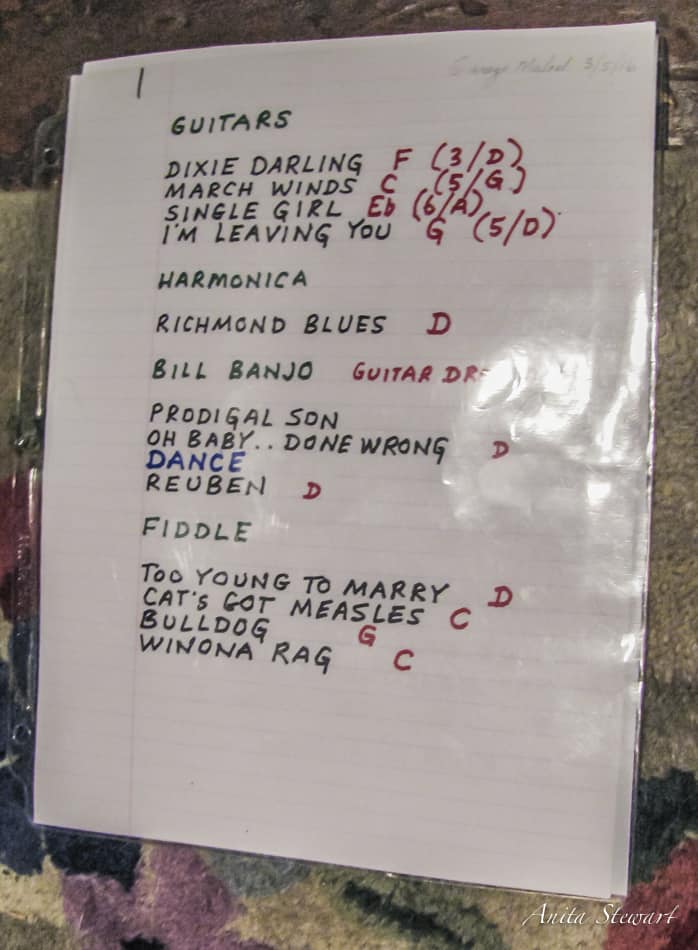 1
3/5/16
GUITARS
DIXIE DARLING F (3/D)
MARCH WINDS C (5/G)
SINGLE GIRL Eb (6/A)
I'M LEAVING YOU G (5/D)
HARMONICA
RICHMOND BLUES D
BILL BANJO GUITAR
PRODIGAL SON
OH BABY.. DONE WRONG D
DANCE
REUBEN D
FIDDLE
TOO YOUNG TO MARRY D
CAT'S GOT MEASLES C
BULLDOG G
WINONA RAG C
Anita Stewart